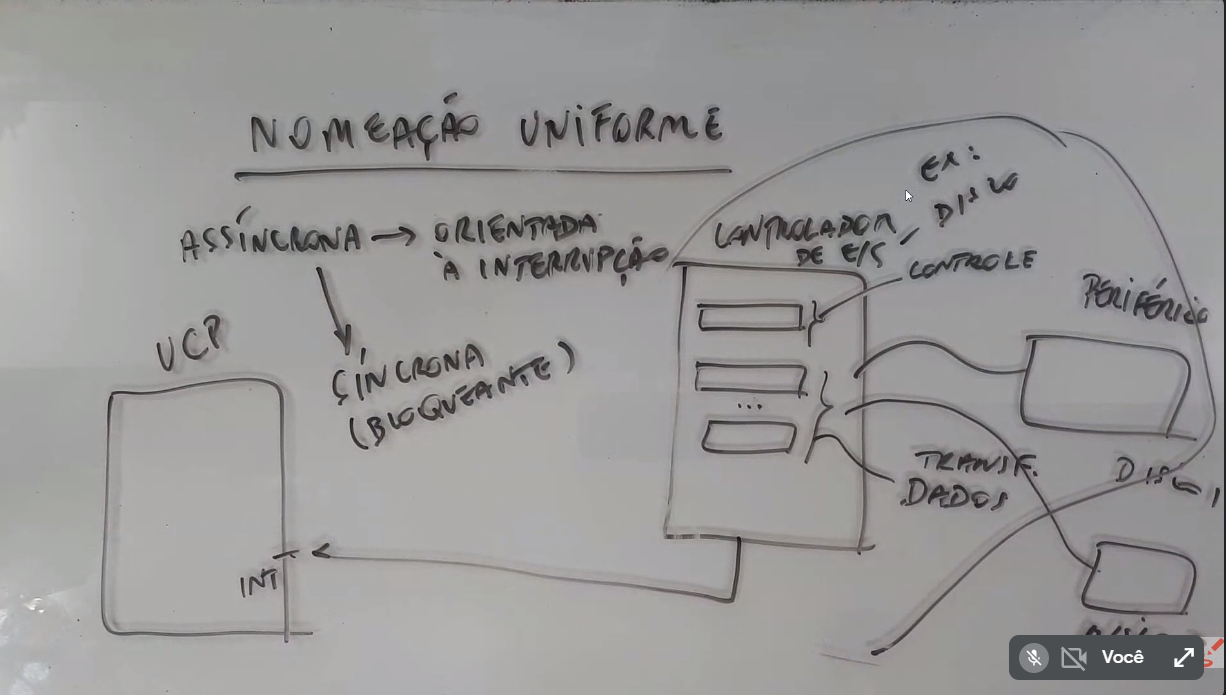 NOMEAÇÃO UNIFORME
ASSÍNCRONA → ORIENTADA
À INTERRUPÇÃO
SÍNCRONA
(BLOQUEANTE)
UCP
INT
CONTROLADOR
DE E/S
EX:
DISCO
CONTROLE
...
TRANSF.
DADOS
PERIFÉRICO
DISCO 1
Você